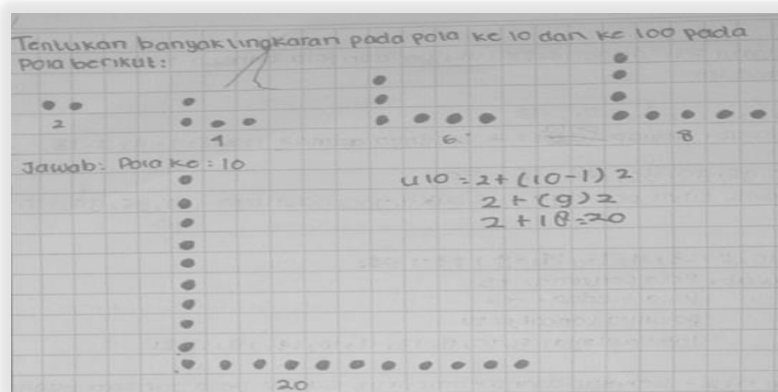 Tentukan banyak lingkaran pada pola ke 10 dan ke 100 pada
pola berikut:
2 4 6 8
Jawab: Pola ke: 10
U10 = 2 + (10-1) 2
2 + (9) 2
2 + 18 = 20
20